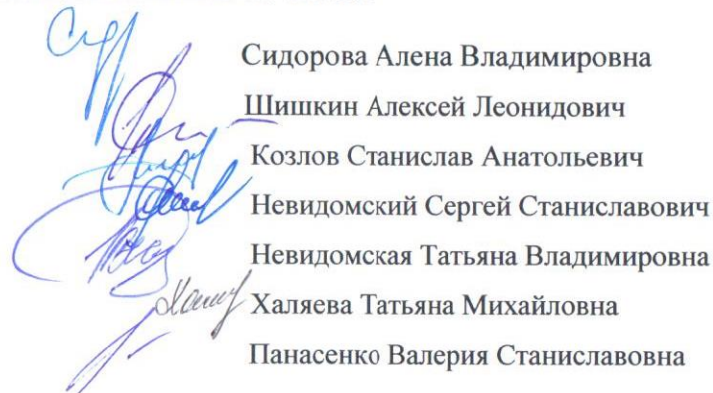 Сидорова Алена Владимировна
Шишкин Алексей Леонидович
Козлов Станислав Анатольевич
Невидомский Сергей Станиславович
Невидомская Татьяна Владимировна
Халяева Татьяна Михайловна
Панасенко Валерия Станиславовна